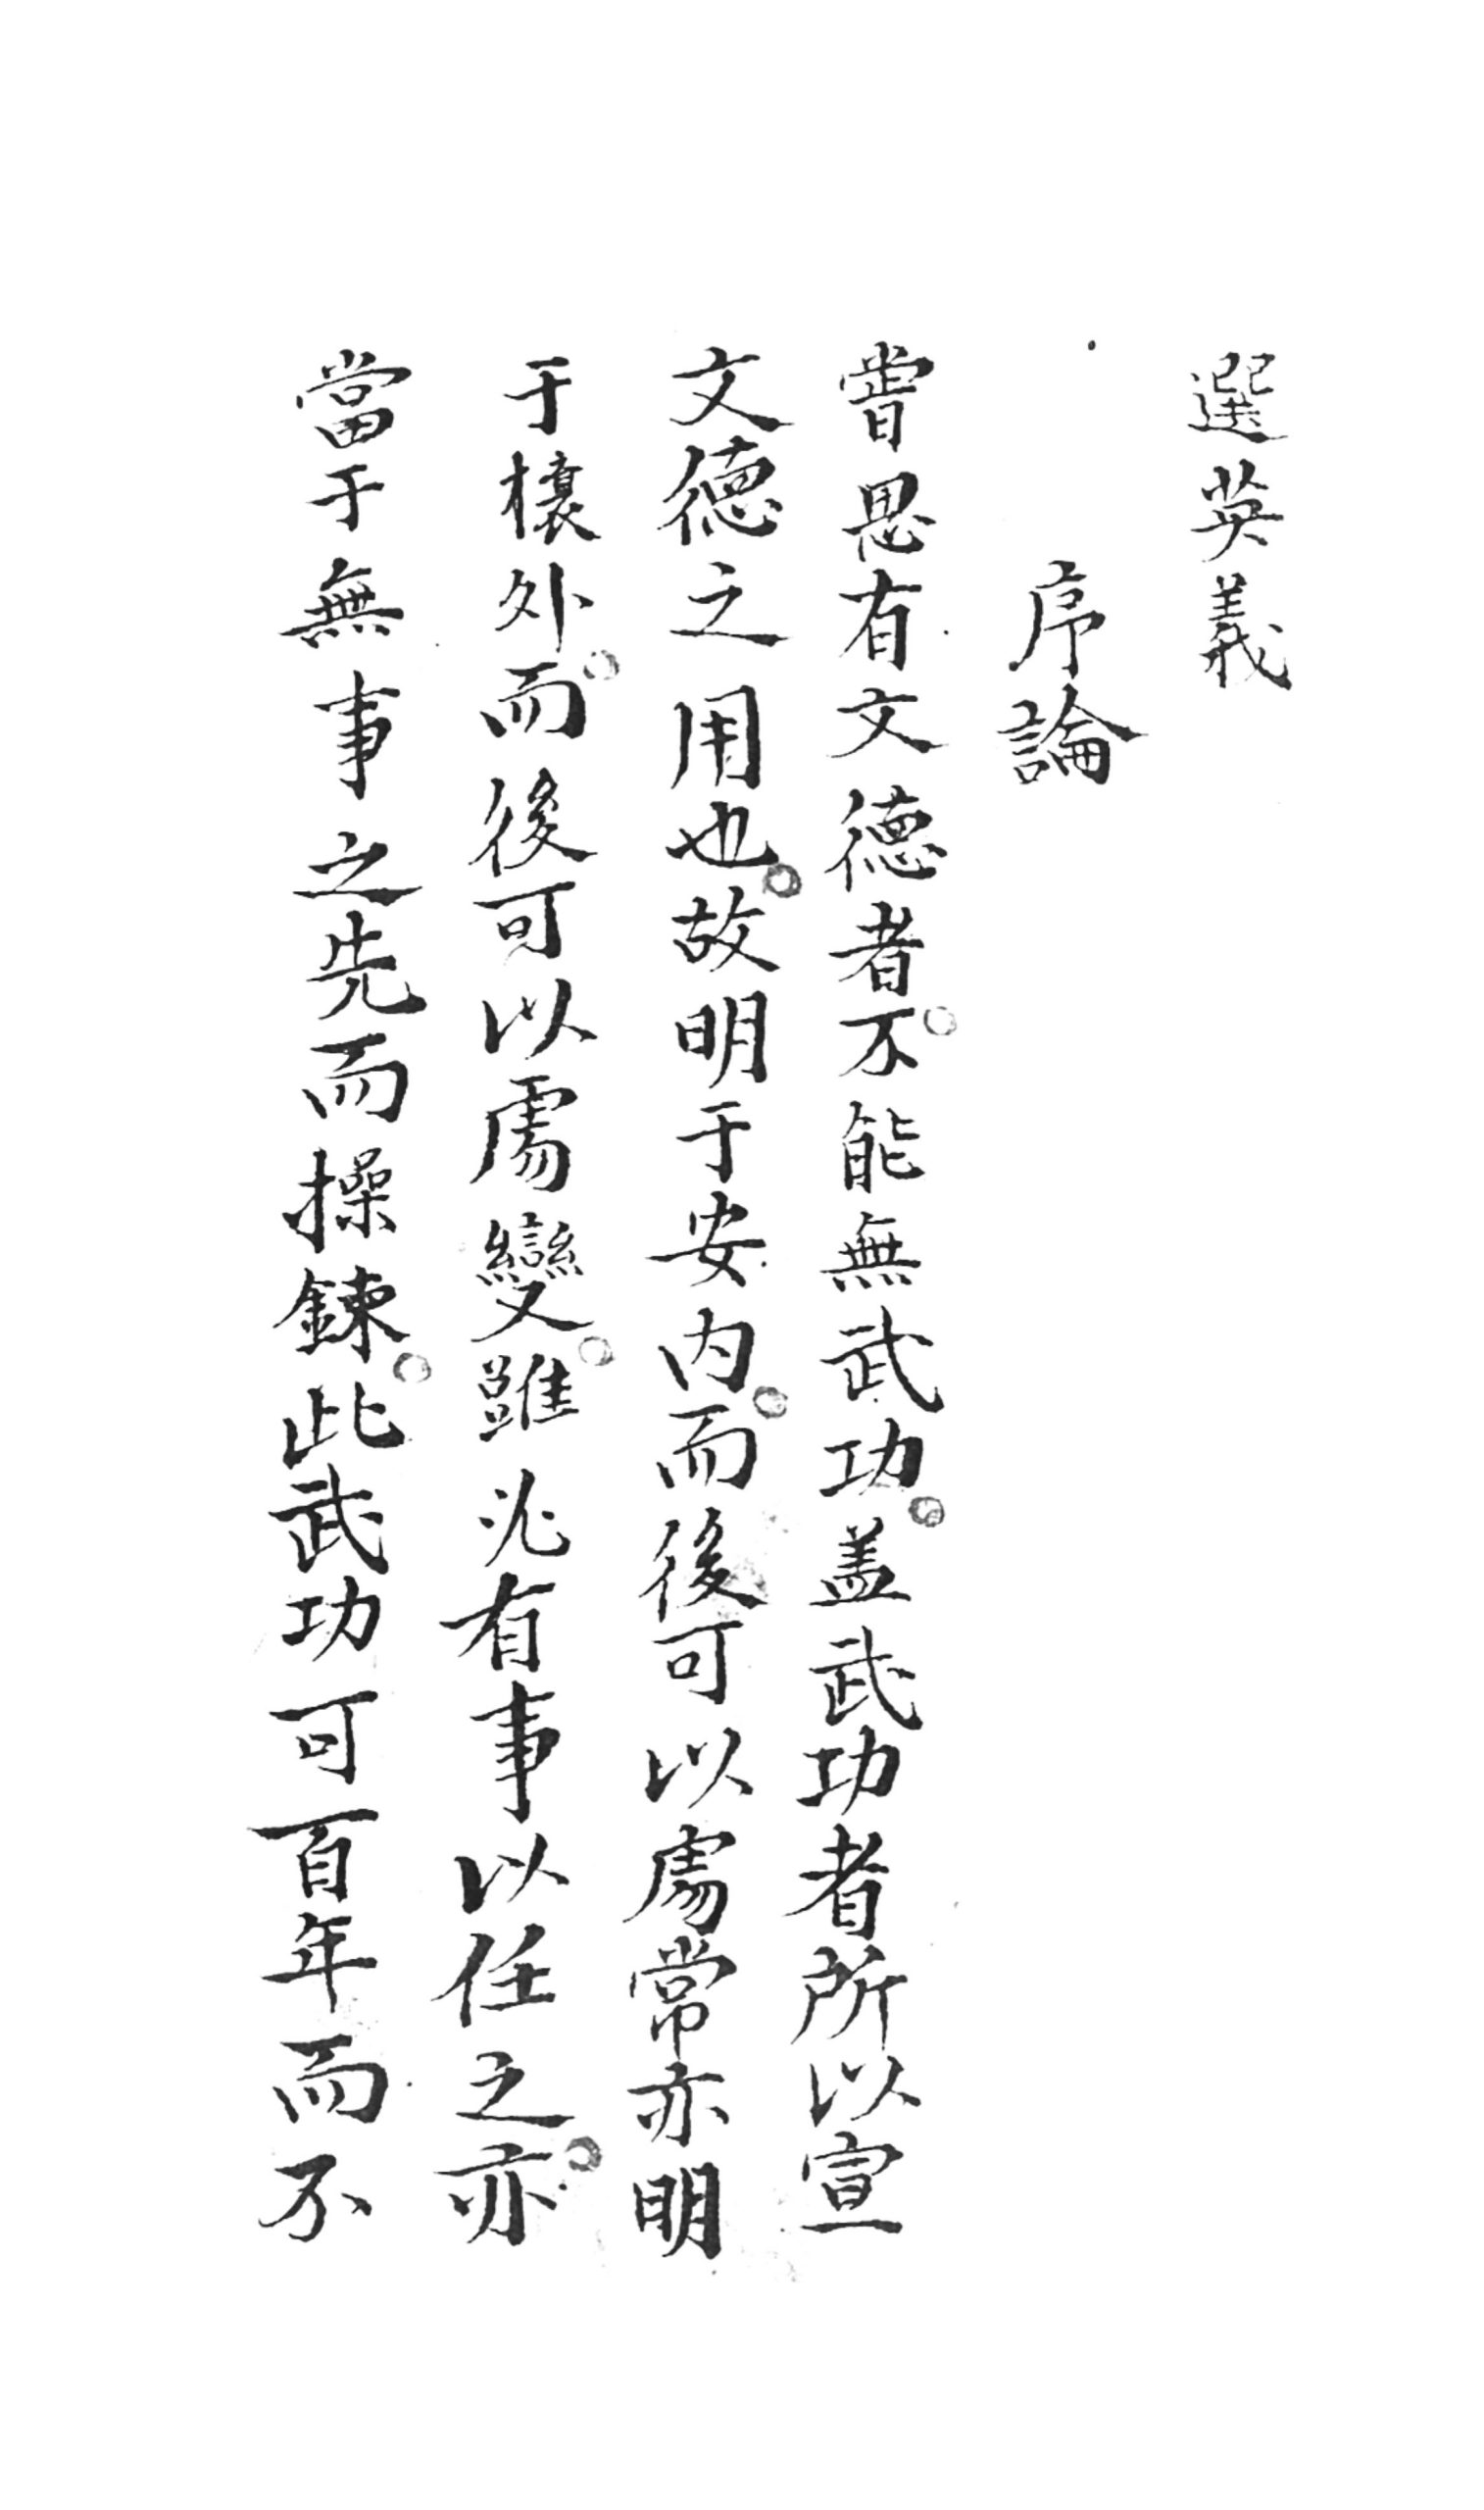 選英義
序論
嘗思有文德者。不能無武功。盖武功者所以宣
文德之用也。故明于安内。而後可以處常亦明
于攘外。而後可以處變。雖必有事以任之。亦
當于無事之先而操鍊。此武功可百年而不